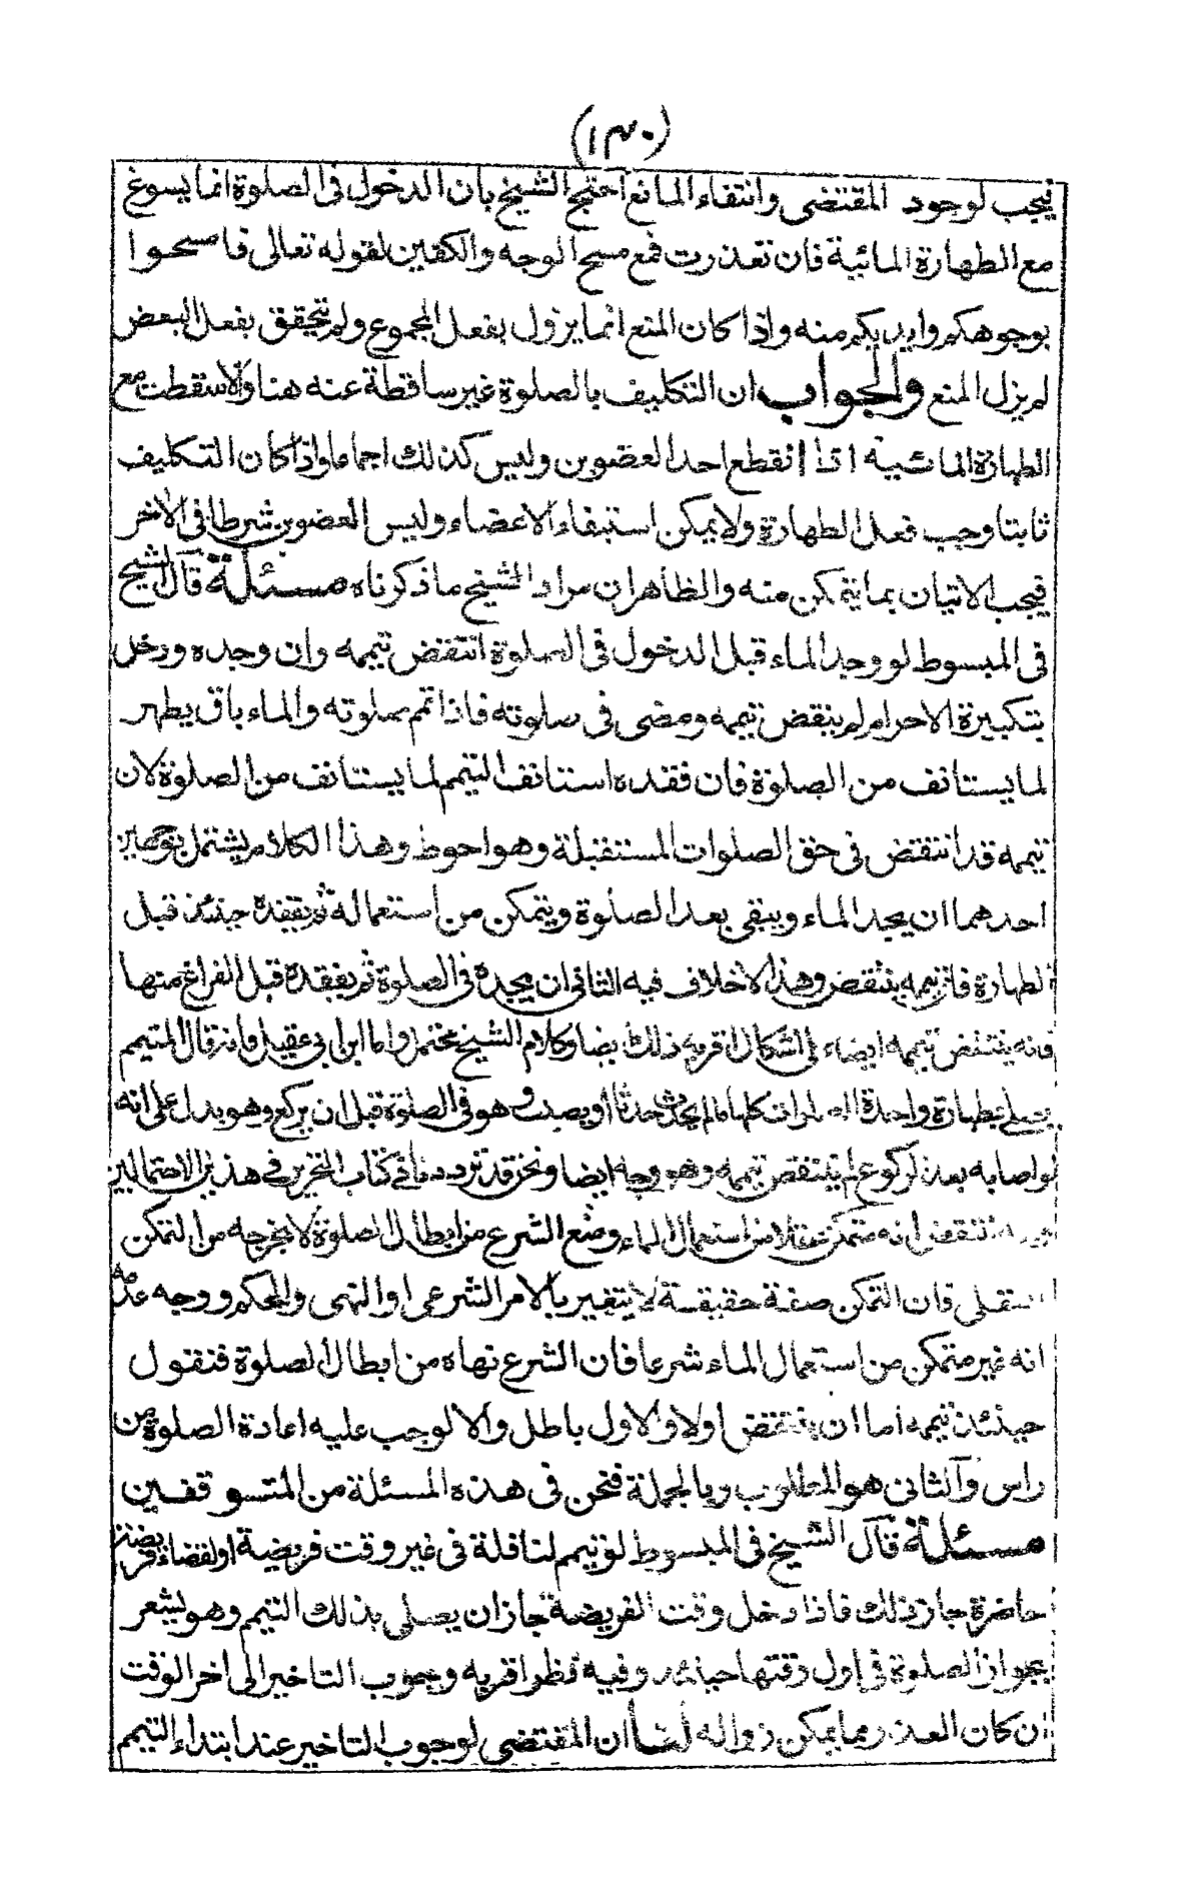 (١٣٠)
فيجب لوجود المقتضى وانتفاء المانع احتج الشيخ بان الدخول فى الصلوة انما يسوغ
مع الطهارة المائية فان تعذرت فمع مسح الوجه والكفين لقوله تعالى فامسحوا
بوجوهكم وايديكم منه واذا كان المنع انما يزول بفعل المجموع ولم يتحقق بفعل البعض
لم يزل المنع والجواب ان التكليف بالصلوة غير ساقطة عنه هنا والا سقطت مع
الطهارة المائية اذا انقطع احد العضوين وليس كذلك اجماعا واذا كان التكليف
ثابتا وجب فعل الطهارة ولا يمكن استيفاء الاعضاء وليس العضوين شرطا فى الاخر
فيجب الاتيان بما يتمكن منه والظاهر ان مراد الشيخ ما ذكرناه مسئلة قال الشيخ
فى المبسوط لو وجد الماء قبل الدخول فى الصلوة انتقض تيممه وان وجده ودخل
بتكبيرة الاحرام لم ينقض تيممه ومضى فى صلوته فاذا تمم صلوته والماء باق يطهر
لما يستانف من الصلوة فان فقده استانف التيمم لما يستانف من الصلوة لان
تيممه قد انتقض فى حق الصلوات المستقبلة وهو احوط وهذا الكلام يشتمل بوجهين
احدهما ان يجد الماء ويبقى بعد الصلوة ويتمكن من استعماله ثم يفقده حينئذ قبل
الطهارة فان تيممه ينتقض وهذا لا خلاف فيه الثانى ان يجده فى الصلوة ثم يفقده قبل الفراغ منها
فانه ينتقض تيممه ايضا على اشكال اقربه ذلك ايضا وكلام الشيخ محتمل واما ابن ابى عقيل فانه قال المتيمم
يصلى بطهارة واحدة الصلوات كلها ما لم يحدث حدثا او يصيب وهو فى الصلوة قبل ان يركع وهو يدل على انه
لو اصابه بعد الركوع لم ينتقض تيممه وهو وجه ايضا ونحن قد ترددنا فى كتاب التحرير فى هذين الاحتمالين
انتقض انه متمكن عقلا من استعمال الماء ومنع الشرع من ابطال الصلوة لا يخرجه من التمكن
فان التمكن صفة حقيقية لا يتغير بالامر الشرعى او النهى والحكم ووجه عدمه
انه غير متمكن من استعمال الماء شرعا فان الشرع نهاه من ابطال الصلوة فنقول
حينئذ تيممه اما ان ينتقض اولا والاول باطل والا لوجب عليه اعادة الصلوة من
راس والثانى هو المطلوب وبالجملة فنحن فى هذه المسئلة من المتسوقفين
مسئلة قال الشيخ فى المبسوط لو تيمم لنافلة فى غير وقت فريضة او لقضاء فريضة
حاضرة جاز ذلك فاذا دخل وقت الفريضة جاز ان يصلى بذلك التيمم وهو يشعر
بجواز الصلوة فى اول وقتها حينئذ وفيه نظر اقربه وجوب التاخير الى اخر الوقت
ان كان العذر مما يمكن زواله لنا ان المقتضى لوجوب التاخير عند ابتداء التيمم